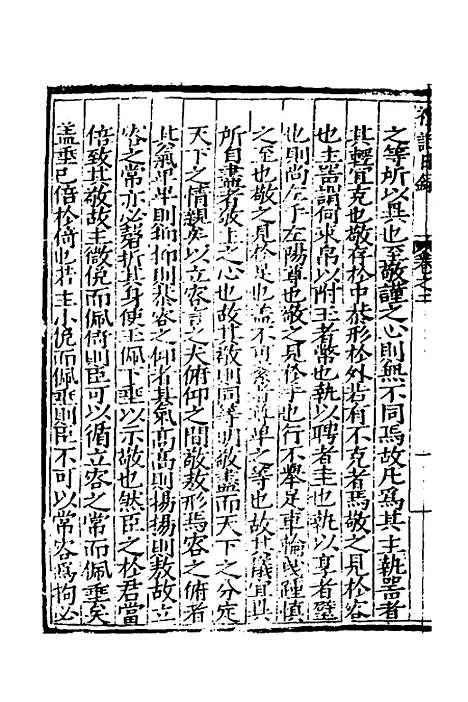 之等所以異也至敬謹之心則無不同焉故凡為其主執器者
其輕宜克也敬存於中恭形於外若有不克者焉敬之見於容
也主器謂何束帛以附王者幣也執以聘者圭也執以享者璧
也則尚左手左陽尊也敬之見於手也行不舉足車輪曳踵慎
之至也敬之見於足也蓋不可紊者尊卑之等也故其儀宜具
所自盡者敬上之心也故其敬則同等明敬盡而天下之分定
天下之情親矣以立容言之夫俯仰之間敬敖形焉容之俯者
其氣卑卑則抑抑則恭容之仰者其氣高高則揚揚則敖故立
容之常亦必磬折其身使玉佩下垂以示敬也然臣之於君當
倍致其敬故主微俛而佩倚則臣可以循立容之常而佩垂矣
蓋垂已倍於倚也若主小俛而佩垂則臣不可以常容為拘必
卷之二